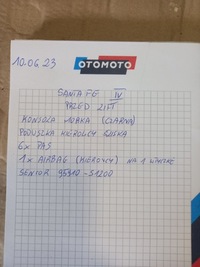 10.06.23
OTOMOTO
SANTA FE IV
PRZED LIFT
KONSOLA (CZARNA)
PODUSZKA KIEROWCY
6x PAS
1x AIRBAG (KIEROWCY) NA 1 WTYCZKE
SENSOR 95910-S1200